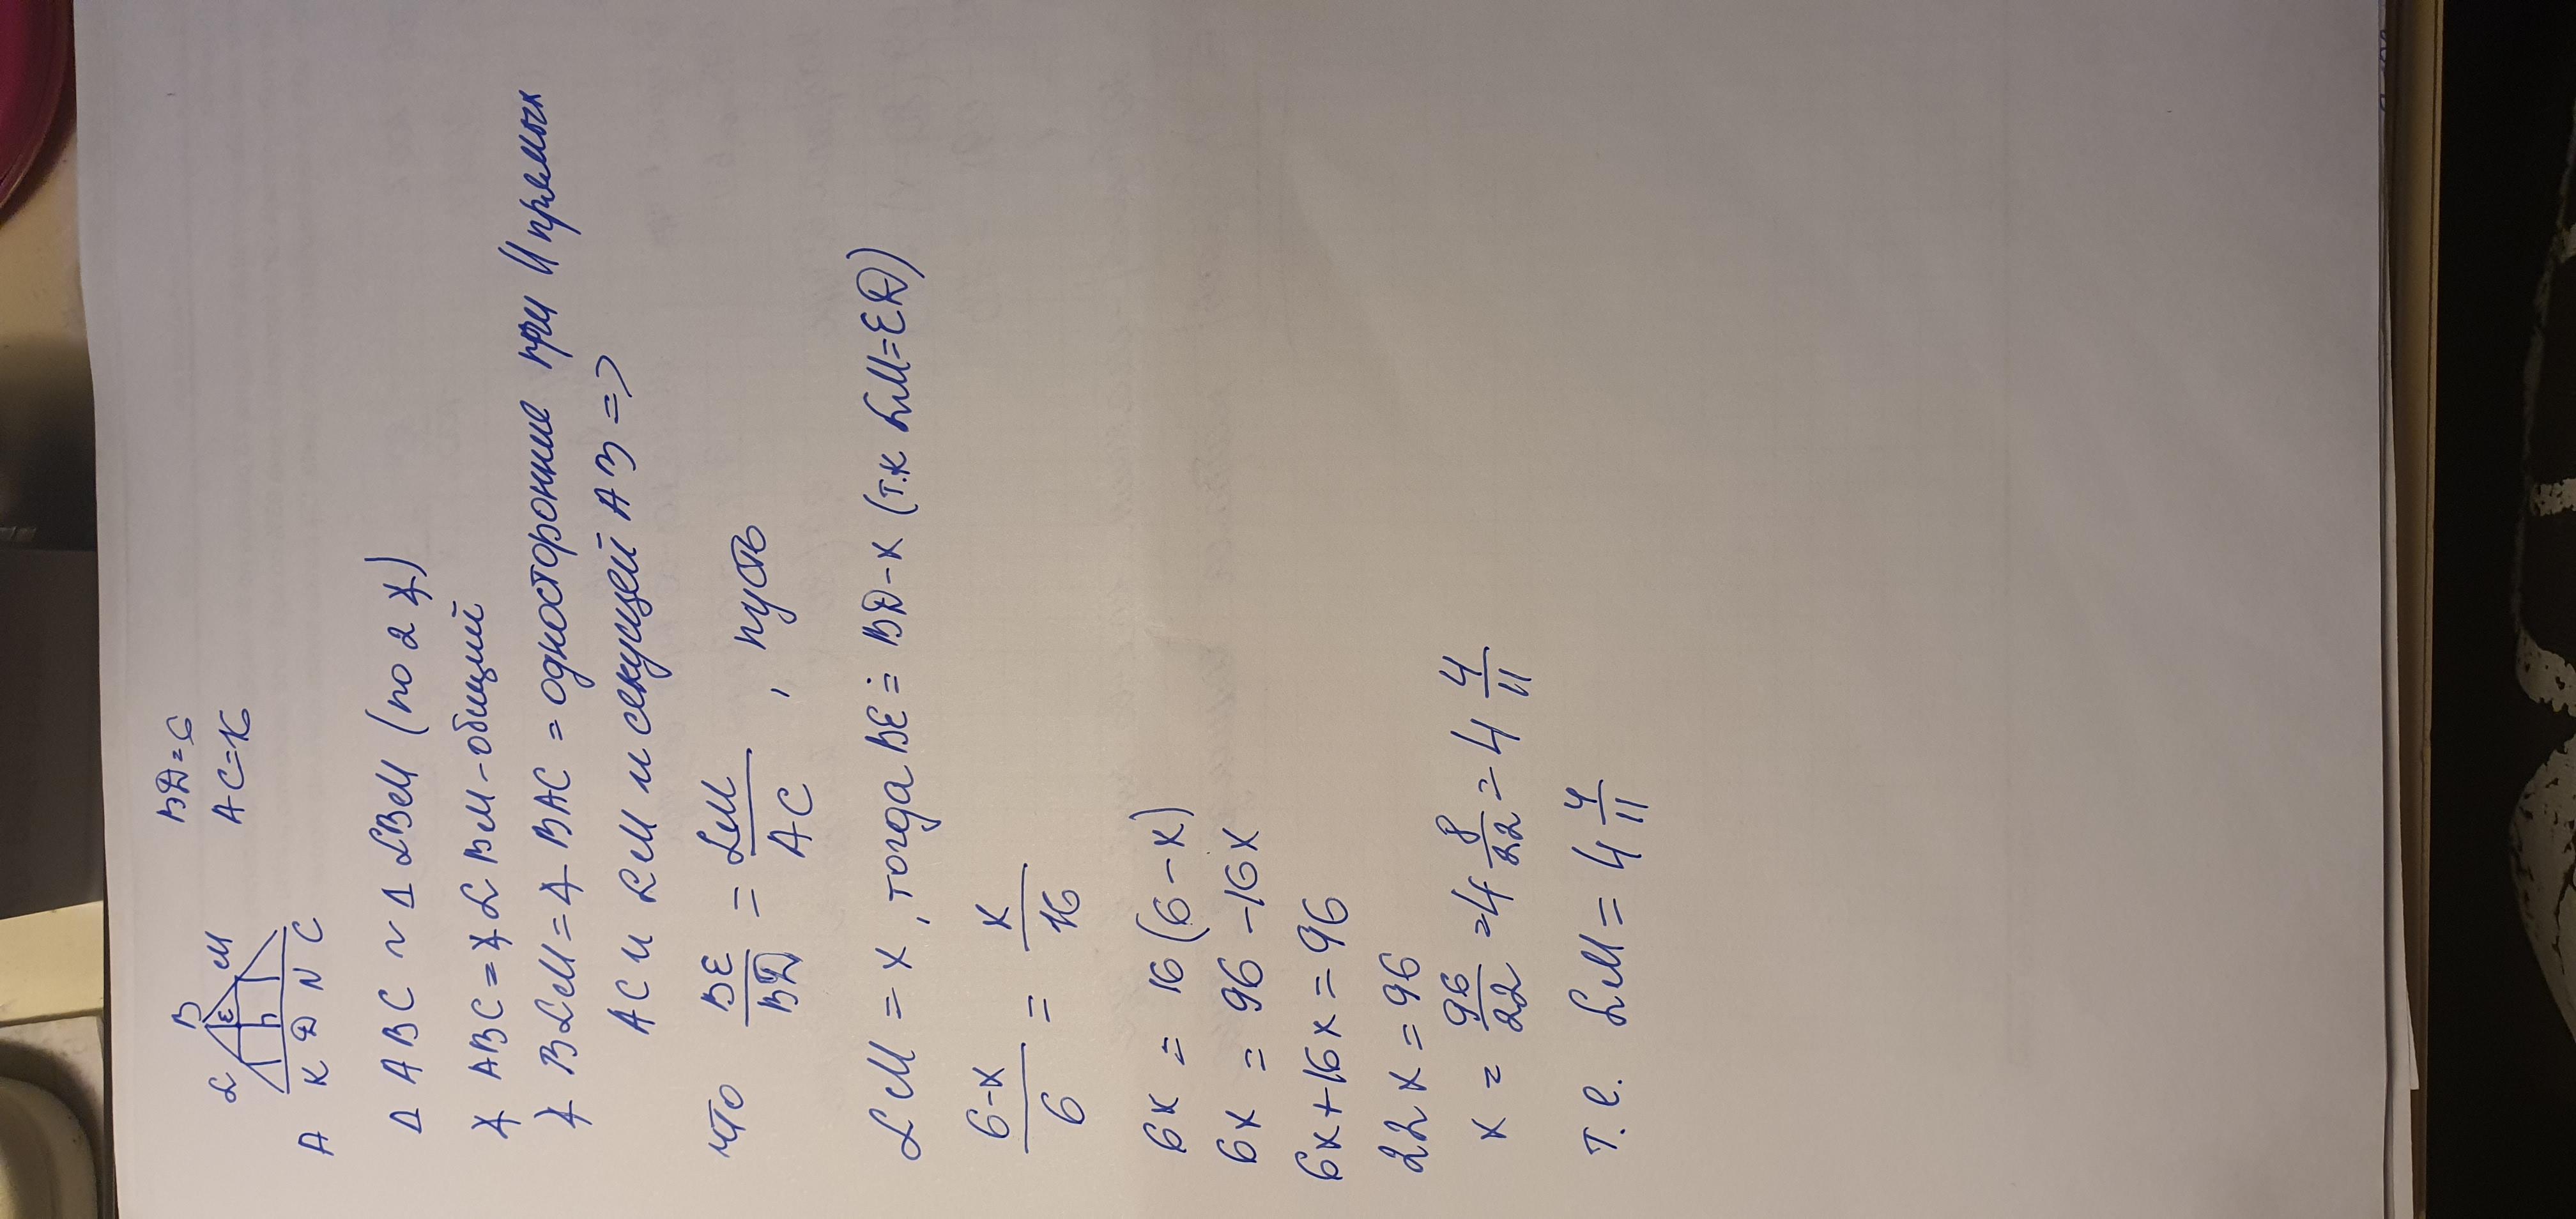 BD=6
AC=16
L B M
E
A K D N C
Δ ABC ~ Δ LBM (по 2 ∡)
∡ ABC = ∡ LBM - общий
∡ BLM = ∡ BAC = односторонние при || прямых
AC и LM и секущей AB =>
что BE/BD = LM/AC , пусть
LM = x , тогда BE = BD-x (т.к LM=ED)
6-x/6 = x/16
6x = 16(6-x)
6x = 96-16x
6x+16x=96
22x=96
x = 96/22 = 4 8/22 = 4 4/11
т.е. LM = 4 4/11